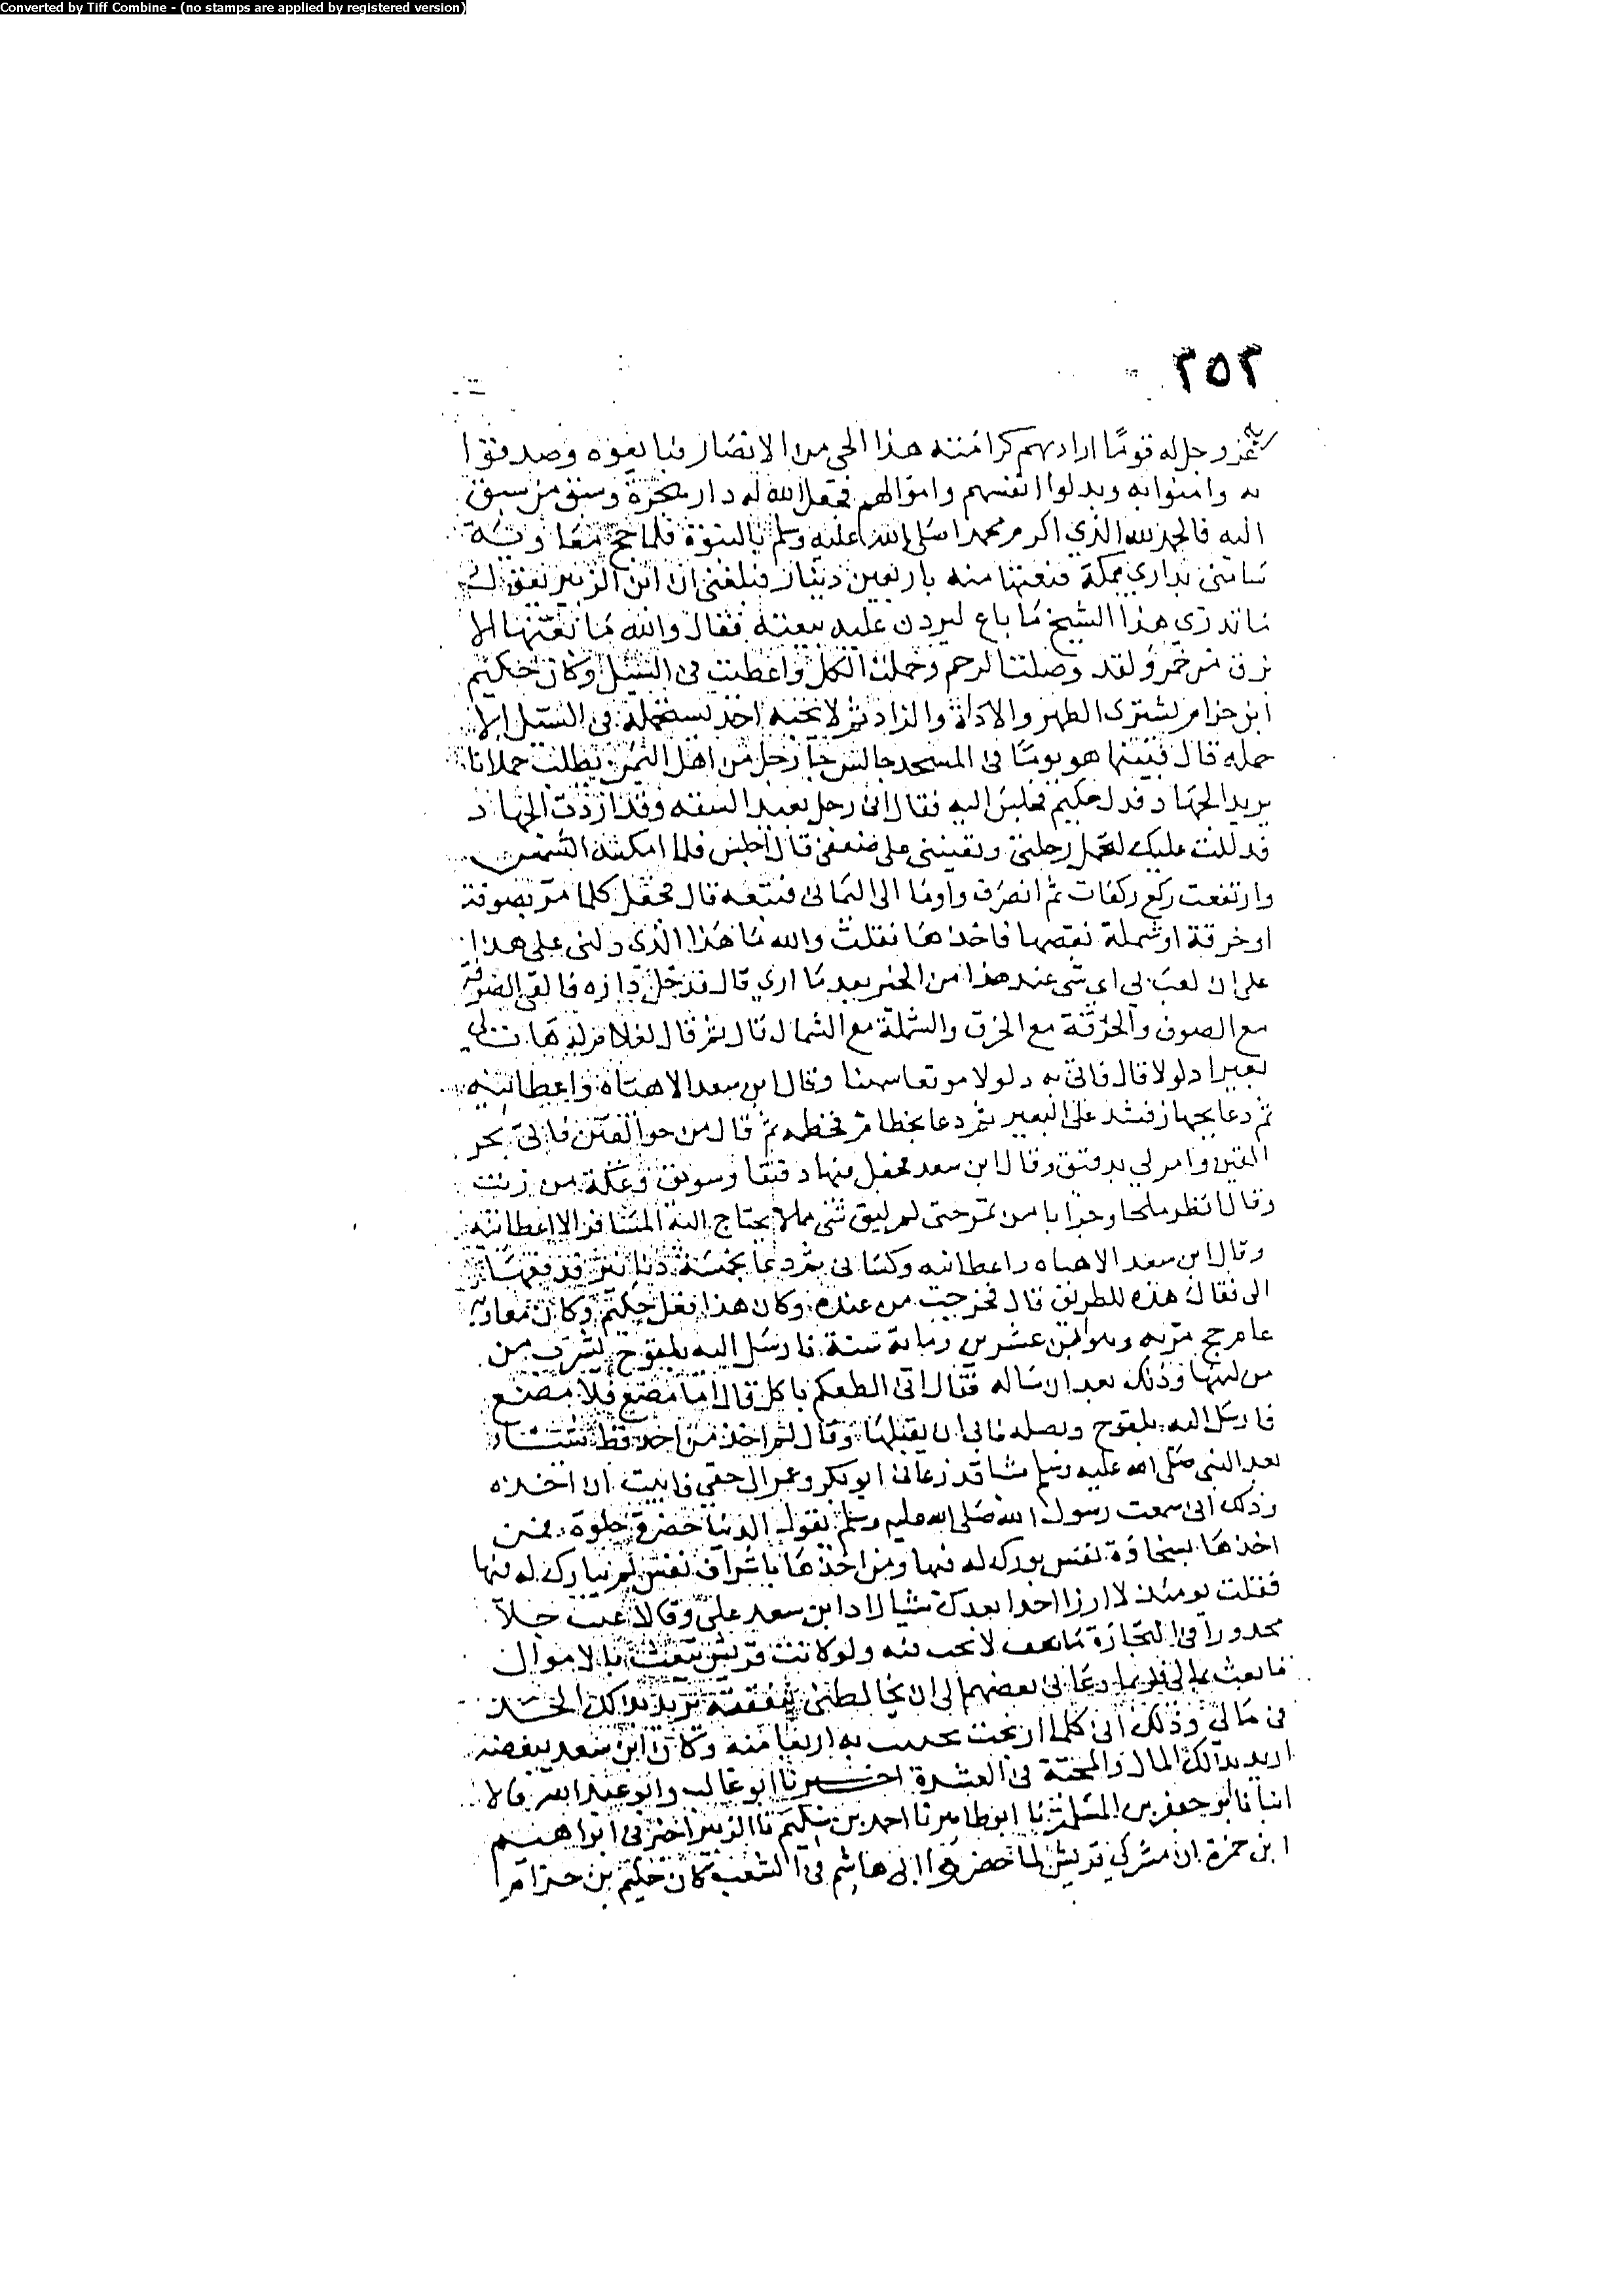 Converted by Tiff Combine - (no stamps are applied by registered version)
٣٥٢
عز وجل له قوما اراد بهم كرامته هذا الحي من الانصار فبايعوه وصدقوا
به وامنوا به وبذلوا انفسهم واموالهم فجعل الله له دار هجرة وسبق من سبق
اليه فالحمد لله الذي اكرم محمدا صلى الله عليه وسلم بالنبوة فلما حج معاوية
سامني بداري بمكة فبعتها منه باربعين دينار فبلغني ان ابن الزبير يقول
ما تدري هذا الشيخ ما باع ليردن عليه بيعته فقال والله ما بعتها الا
بزق من خمر ولقد وصلت الرحم وحملت الكل واعطيت في السبيل وكان حكيم
ابن حزام يشتري الظهر والاداة والزاد ثم لا يجيه احد يستحمله في السبيل الا
حمله قال فبينما هو يوما في المسجد جالس جا رجل من اهل اليمن يطلب حملانا
يريد الجهاد فدل حكيم فجلس اليه فقال اني رجل بعيد السقه وقد اردت الجهاد
فدللت عليك لتحمل رحلتي وتعينني على ضعفي قال اجلس فلما امكنته الشمس
وارتفعت ركع ركعات ثم انصرف واوما الى اليماني فتبعه قال فجعل كلما مر بصوفة
او خرقة او شملة نفضها فاخذها فقلت والله ما هذا الذي دلني على هذا
على ان لعب بي اي شي عند هذا من الخير بعد ما ارى قال فدخل داره فالقى الصوفة
مع الصوف والخرقة مع الخرق والشملة مع الشمال قال ثم قال لغلام له هات لي
بعيرا ذلولا قال فاتي به ذلولا
ثم دعا بجهاز فشد على البعير ثم دعا بخطام فخطمه ثم قال من جوالقين فاتي بجو
القين وامر لي بدقيق وقال ابن سعد فجعل فيها دقيقا وسويق وعكة من زيت
وقال انظر ملحا وجرابا من تمر حتى لم يبق شي مما يحتاج اليه المسافر الا اعطانيه
وقال ابن سعد واعطانيه وكساني ثم دعا بخمسة دنانير فدفعها
الي فقال هذه للطريق قال فخرجت من عنده وكان هذا فعل حكيم وكان معاوية
عام حج مر به وهو ابن عشرين وماية سنة فارسل اليه بلقوح يشرب من
من لبنها وذلك بعد ان ساله فقال اي الطعام ياكل قال اما مضغ فلا مضغ
فارسل اليه بلقوح وبصله فابى ان يقبلها وقال لم اخذ من احد قط شيئا
بعد النبي صلى الله عليه وسلم شيا قد دعاني ابو بكر وعمر الى حقي فابيت ان اخذه
وذلك اني سمعت رسول الله صلى الله عليه وسلم يقول الدنيا خضرة حلوة فمن
اخذها بسخاوة نفس بورك له فيها ومن اخذها باشراف نفس لم يبارك له فيها
فقلت يومئذ لا ارزا احدا بعدك شيا زاد ابن سعد على وقال
في التجارة ولو كانت قريش تبعث بالاموال
فابعث بمالي فلربما دعاني بعضهم الى ان يخالطني بنفقته يريد بذلك الجد
في مالي وذلك اني كلما اربحت به اربعا منه وكان ابن سعد
اريد بذلك المال والمحبة في العشيرة اخبرنا ابو غالب وابو عبد الله قالا
انبانا ابو جعفر بن المسلمة نا ابو طاهر نا احمد بن سليم نا الزبير اخبرني ابراهيم
ابن حمزة ان مشركي قريش لما حصروا بني هاشم في الشعب كان حكيم بن حزام